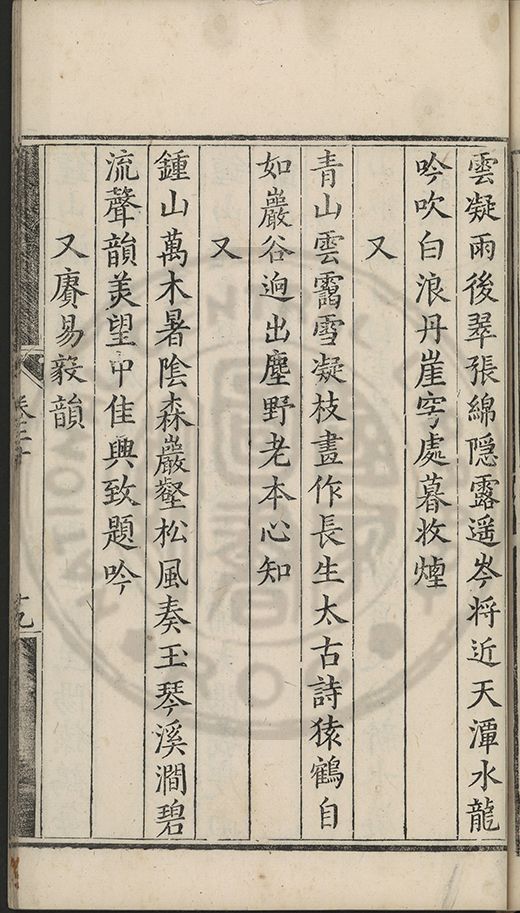 雲凝雨後翠張綿隱露遥岑将近天潭水龍
吟吹白浪丹崖穹處暮收煙
又
青山雲靄雪凝枝畫作長生太古詩猿鶴自
如巖谷逈出塵野老本心知
又
鍾山萬木暑陰森巖壑松風奏玉琴溪澗碧
流聲韻美望中佳興致題吟
又賡易毅韻